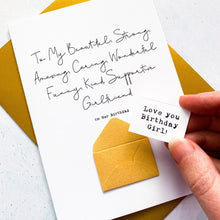 To My Beautiful, Strong,
Amazing, Caring, Wonderful
Funny, Kind, Supportive
Girlfriend
on Her Birthday
Love you
Birthday
Girl!